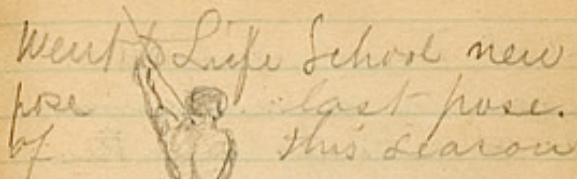 Went to Life School new
pose last pose.
of this season